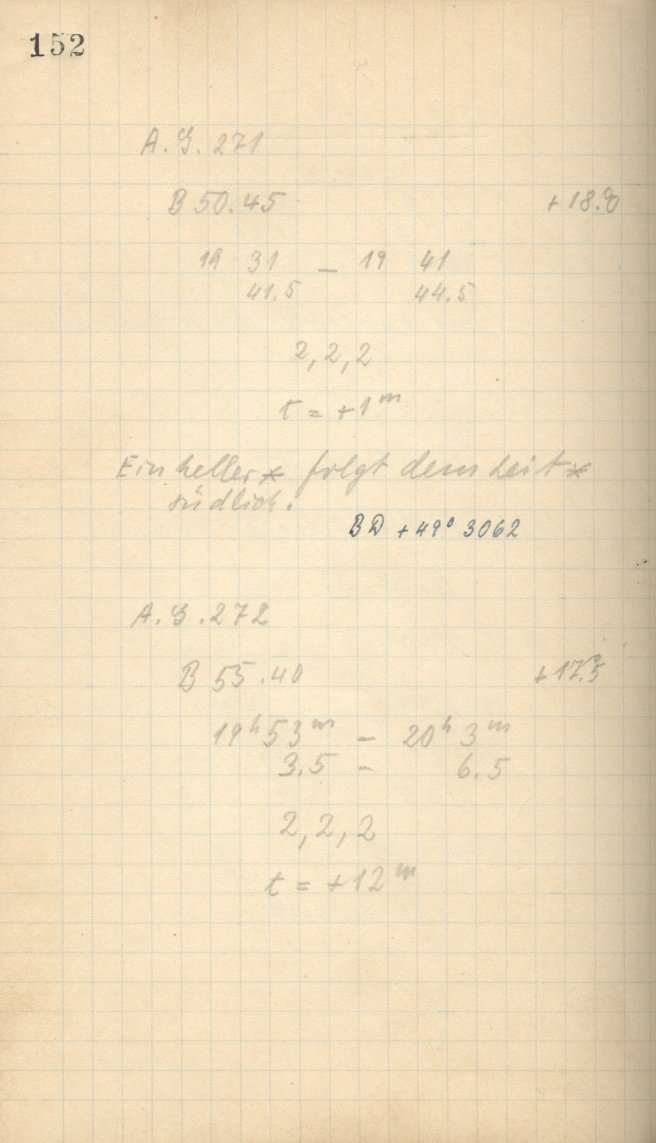 152
A. G. 271
B 50.45 +18.°0
19 31 — 19 41
41.5 44.5
2, 2, 2
t = +1ᵐ
Ein heller * folgt dem Leit *
südlich.
BD +49° 3062
A. G. 272
B 55.40 +17.°5
19ʰ 53ᵐ — 20ʰ 3ᵐ
3.5 — 6.5
2, 2, 2
t = +12ᵐ